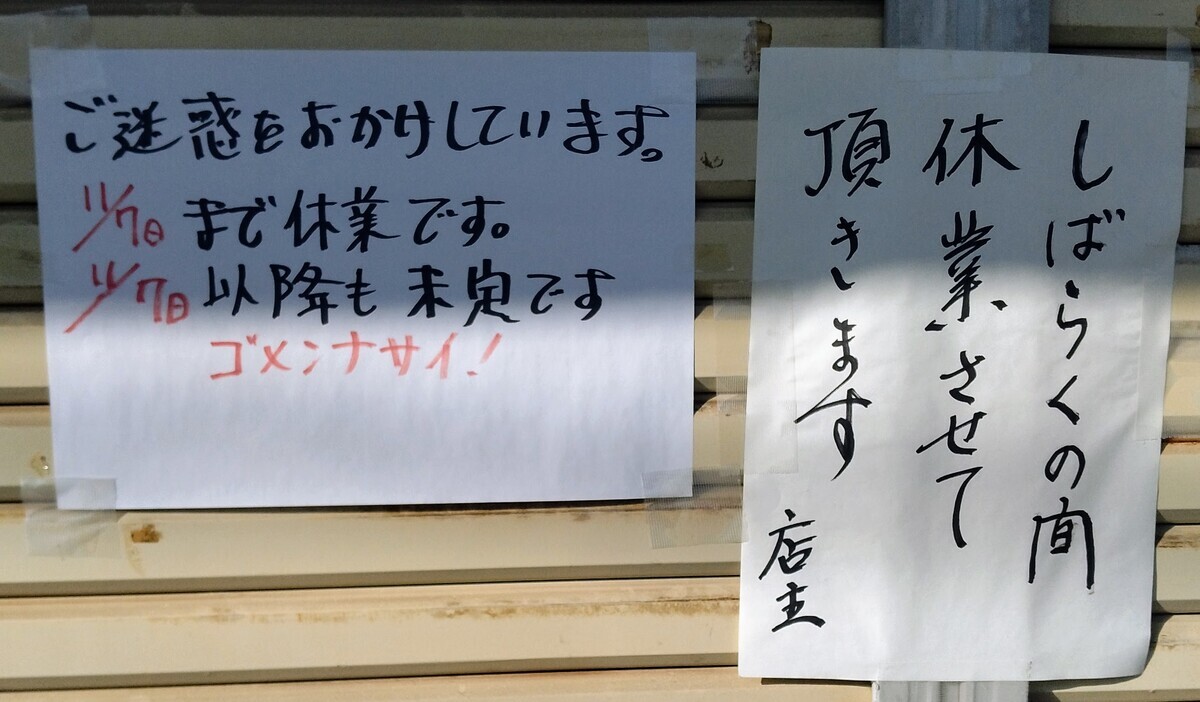 ご迷惑をおかけしています。
11/7日まで休業です。
11/7日以降も未定です
ゴメンナサイ!
しばらくの間
休業させて
頂きます
店主